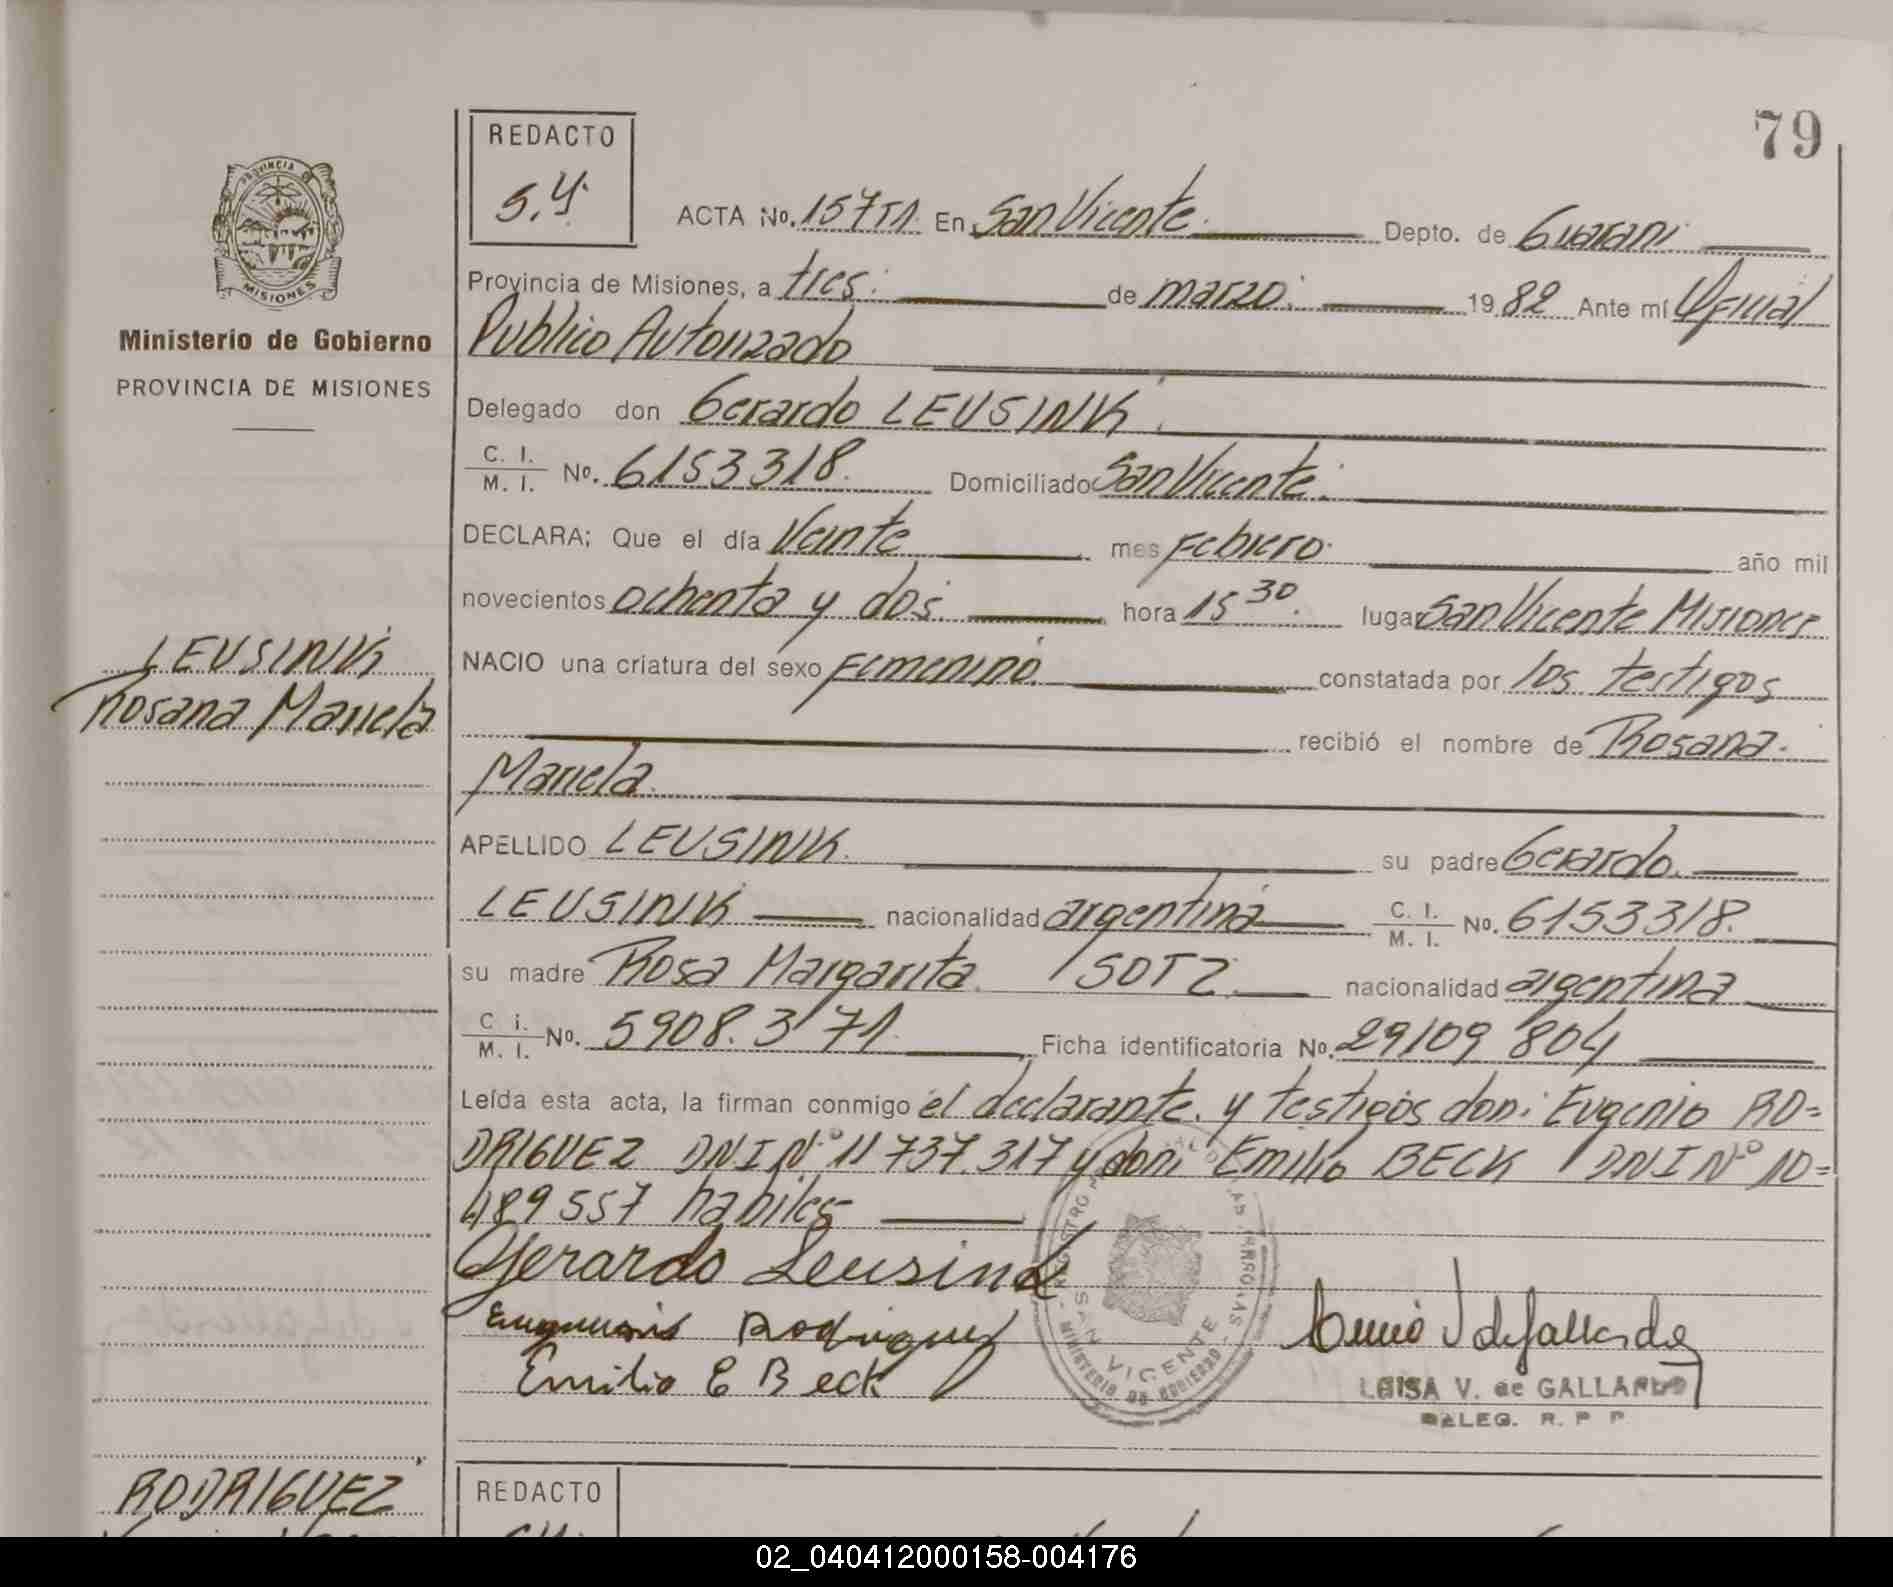 79
REDACTO
S.Y.
PROVINCIA
MISIONES
Ministerio de Gobierno
PROVINCIA DE MISIONES
ACTA No. 157T1. En San Vicente. Depto. de Guarani
Provincia de Misiones, a tres. de marzo. 1982 Ante mí Oficial
Publico Autorizado
Delegado don Gerardo LEUSINK.
C. I. / M. I. No. 6153318. Domiciliado San Vicente.
DECLARA; Que el día Veinte mes Febrero. año mil
novecientos ochenta y dos. hora 15 30. lugar San Vicente Misiones
NACIO una criatura del sexo Femenino constatada por los testigos
recibió el nombre de Rosana.
Mariela.
LEUSINK
Rosana Mariela
APELLIDO LEUSINK. su padre Gerardo.
LEUSINK nacionalidad argentina C. I. / M. I. No. 6153318.
su madre Rosa Margarita SOTZ. nacionalidad argentina
C i. / M. I. No. 5908.371. Ficha identificatoria No. 29109 804
Leída esta acta, la firman conmigo el declarante. y testigos don: Eugenio RO=
DRIGUEZ DNI Nº 11737.317 y don: Emilio BECK DNI Nº 10=
489557 habiles
Gerardo Leusink
Eugenio Rodriguez
Emilio E Beck
SAN VICENTE
MINISTERIO DE GOBIERNO
LUISA V. de GALLARDO
DELEG. R. P P
RODRIGUEZ
REDACTO
02_040412000158-004176